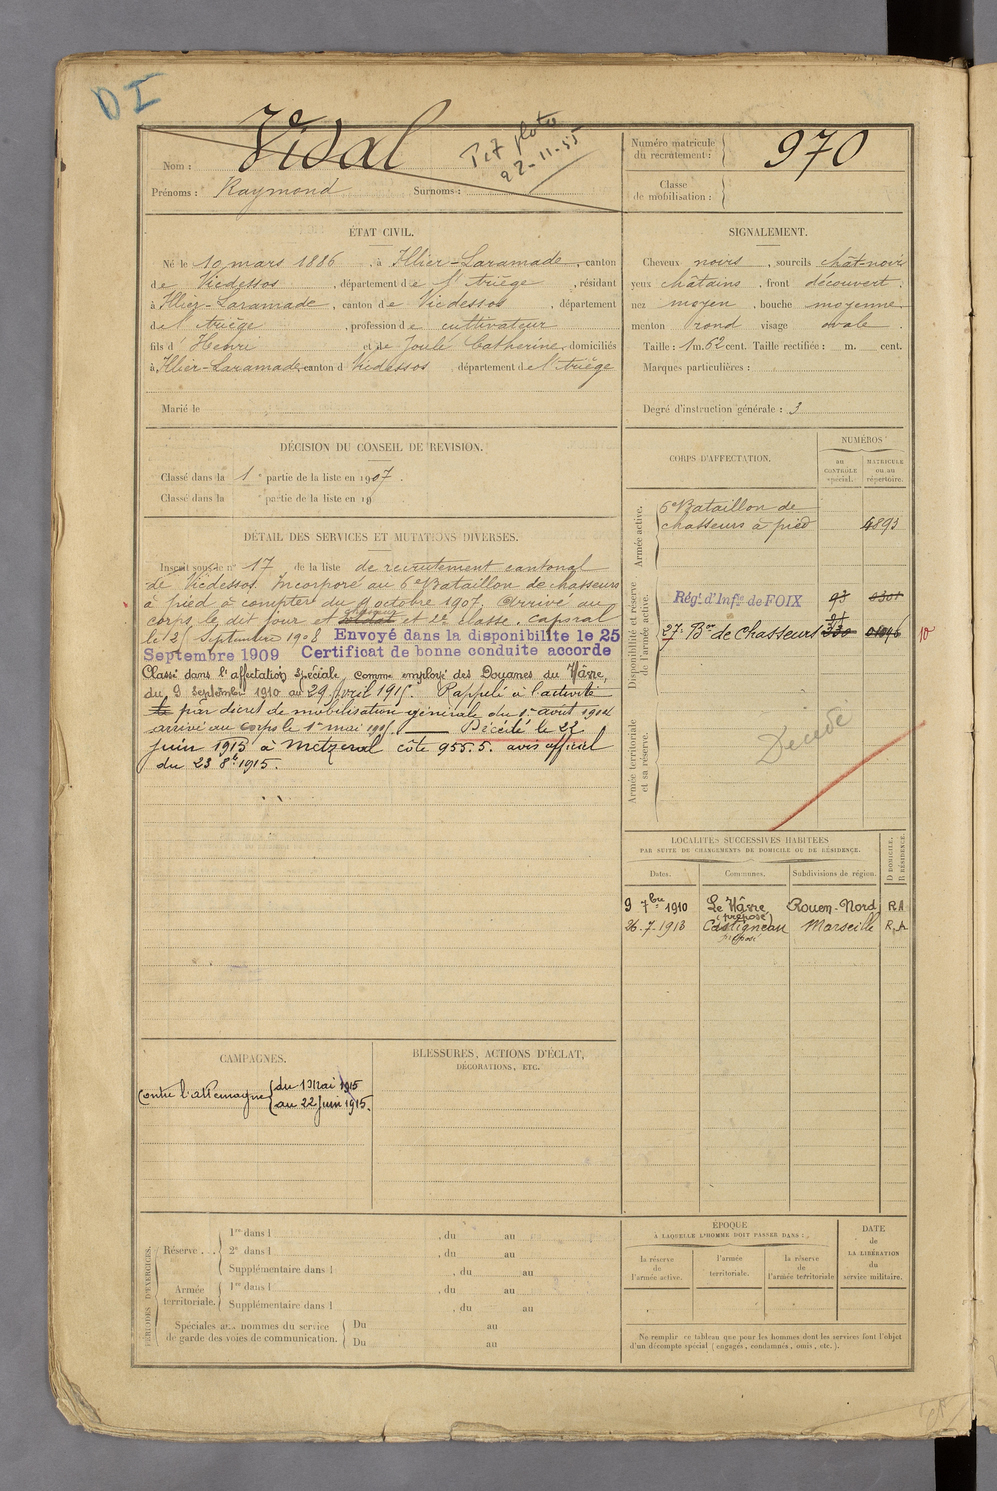 DI
Nom : Vidal
Pet photo
22-11-55
Prénoms : Raymond Surnoms :
Numéro matricule du recrutement : 970
Classe de mobilisation :
ÉTAT CIVIL.
Né le 10 mars 1886 , à Illier-Laramade, canton
de Vicdessos , département de l'Ariège , résidant
à Illier-Laramade , canton de Vicdessos , département
de l'Ariège , profession de cultivateur
fils d' Henri et de Joulé Catherine, domiciliés
à Illier-Laramade canton d Vicdessos , département de l'Ariège
Marié le
SIGNALEMENT.
Cheveux noirs , sourcils chât-noirs
yeux châtains , front découvert ,
nez moyen , bouche moyenne
menton rond visage ovale .
Taille : 1 m. 62 cent. Taille rectifiée : m. cent.
Marques particulières :
Degré d'instruction générale : 3
DÉCISION DU CONSEIL DE REVISION.
Classé dans la 1e partie de la liste en 1907.
Classé dans la partie de la liste en 19
DÉTAIL DES SERVICES ET MUTATIONS DIVERSES.
Inscrit sous le n° 17 de la liste de recrutement cantonal
de Vicdessos. Incorporé au 6e Bataillon de chasseurs
à pied à compter du 9 octobre 1907. Arrivé au
corps le dit jour et soldat et 2e classe. Caporal
le 25 Septembre 1908 Envoyé dans la disponibilité le 25
Septembre 1909 Certificat de bonne conduite accordé
Classé dans l'affectation spéciale comme employé des Douanes du Hâvre,
du 9 Septembre 1910 au 29 Avril 1915. Rappelé à l'activité
par décret de mobilisation générale du 1er août 1914
arrivé au corps le 1er mai 1915. Décédé le 22
juin 1915 à Metzeral côte 955.5. avis officiel
du 23 8bre 1915.
CORPS D'AFFECTATION.
NUMÉROS
au CONTRÔLE spécial.
MATRICULE ou au répertoire.
Armée active.
6e Bataillon de
chasseurs à pied 4893
Disponibilité et réserve de l'armée active.
Régt d'Infie de FOIX
27e Bon de Chasseurs
10
Armée territoriale et sa réserve.
Décédé
LOCALITÉS SUCCESSIVES HABITÉES
PAR SUITE DE CHANGEMENTS DE DOMICILE OU DE RÉSIDENCE.
Dates. Communes. Subdivisions de région. D DOMICILE. R RÉSIDENCE.
9 7bre 1910 Le Hâvre Rouen-Nord R A
(préposé)
26-7-1913 Castigneau Marseille R. A
préposé
CAMPAGNES.
Contre l'Allemagne { du 1 Mai 1915
{ au 22 Juin 1915.
BLESSURES, ACTIONS D'ÉCLAT,
DÉCORATIONS, ETC.
PÉRIODES D'EXERCICES.
Réserve ...
1re dans l , du au
2e dans l , du au
Supplémentaire dans l , du au
Armée territoriale.
1re dans l , du au
Supplémentaire dans l , du au
Spéciales aux hommes du service
de garde des voies de communication.
Du au
Du au
ÉPOQUE
À LAQUELLE L'HOMME DOIT PASSER DANS :
la réserve de l'armée active.
l'armée territoriale.
la réserve de l'armée territoriale
DATE de LA LIBÉRATION du service militaire.
Ne remplir ce tableau que pour les hommes dont les services font l'objet
d'un décompte spécial (engagés, condamnés, omis, etc.).